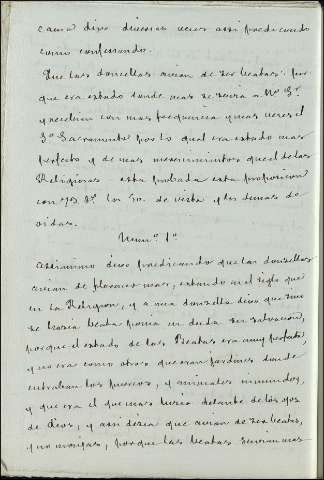 causa dixo diversas veces assi predicando
como confessando.
Que las donzellas avian de ser beatas: por
que era estado donde mas se servia a Nro Sr.
y recebian con mas frequencia y mas veces el
Sto Sacramento por lo qual era estado mas
perfecto y de mas merecimientos que el de las
Religiosas esta probada esta proposicion
con ts. de vista y los demas de
oidas.
Numo 1o
Assimismo dixo predicando que las donzellas
avian de florecer mas, estando en el siglo que
en la Religion, y a una donzella dixo que sino
se hacia beata ponia en duda su salvacion,
porque el estado de las Beatas era muy perfecto,
y no era como otros que eran jardines donde
entraban los puercos, y animales inmundos,
y que era el que mas lucia delante de los ojos
de Dios, y assi decia que avian de ser beatas,
y no monjas, porque las beatas servian mas